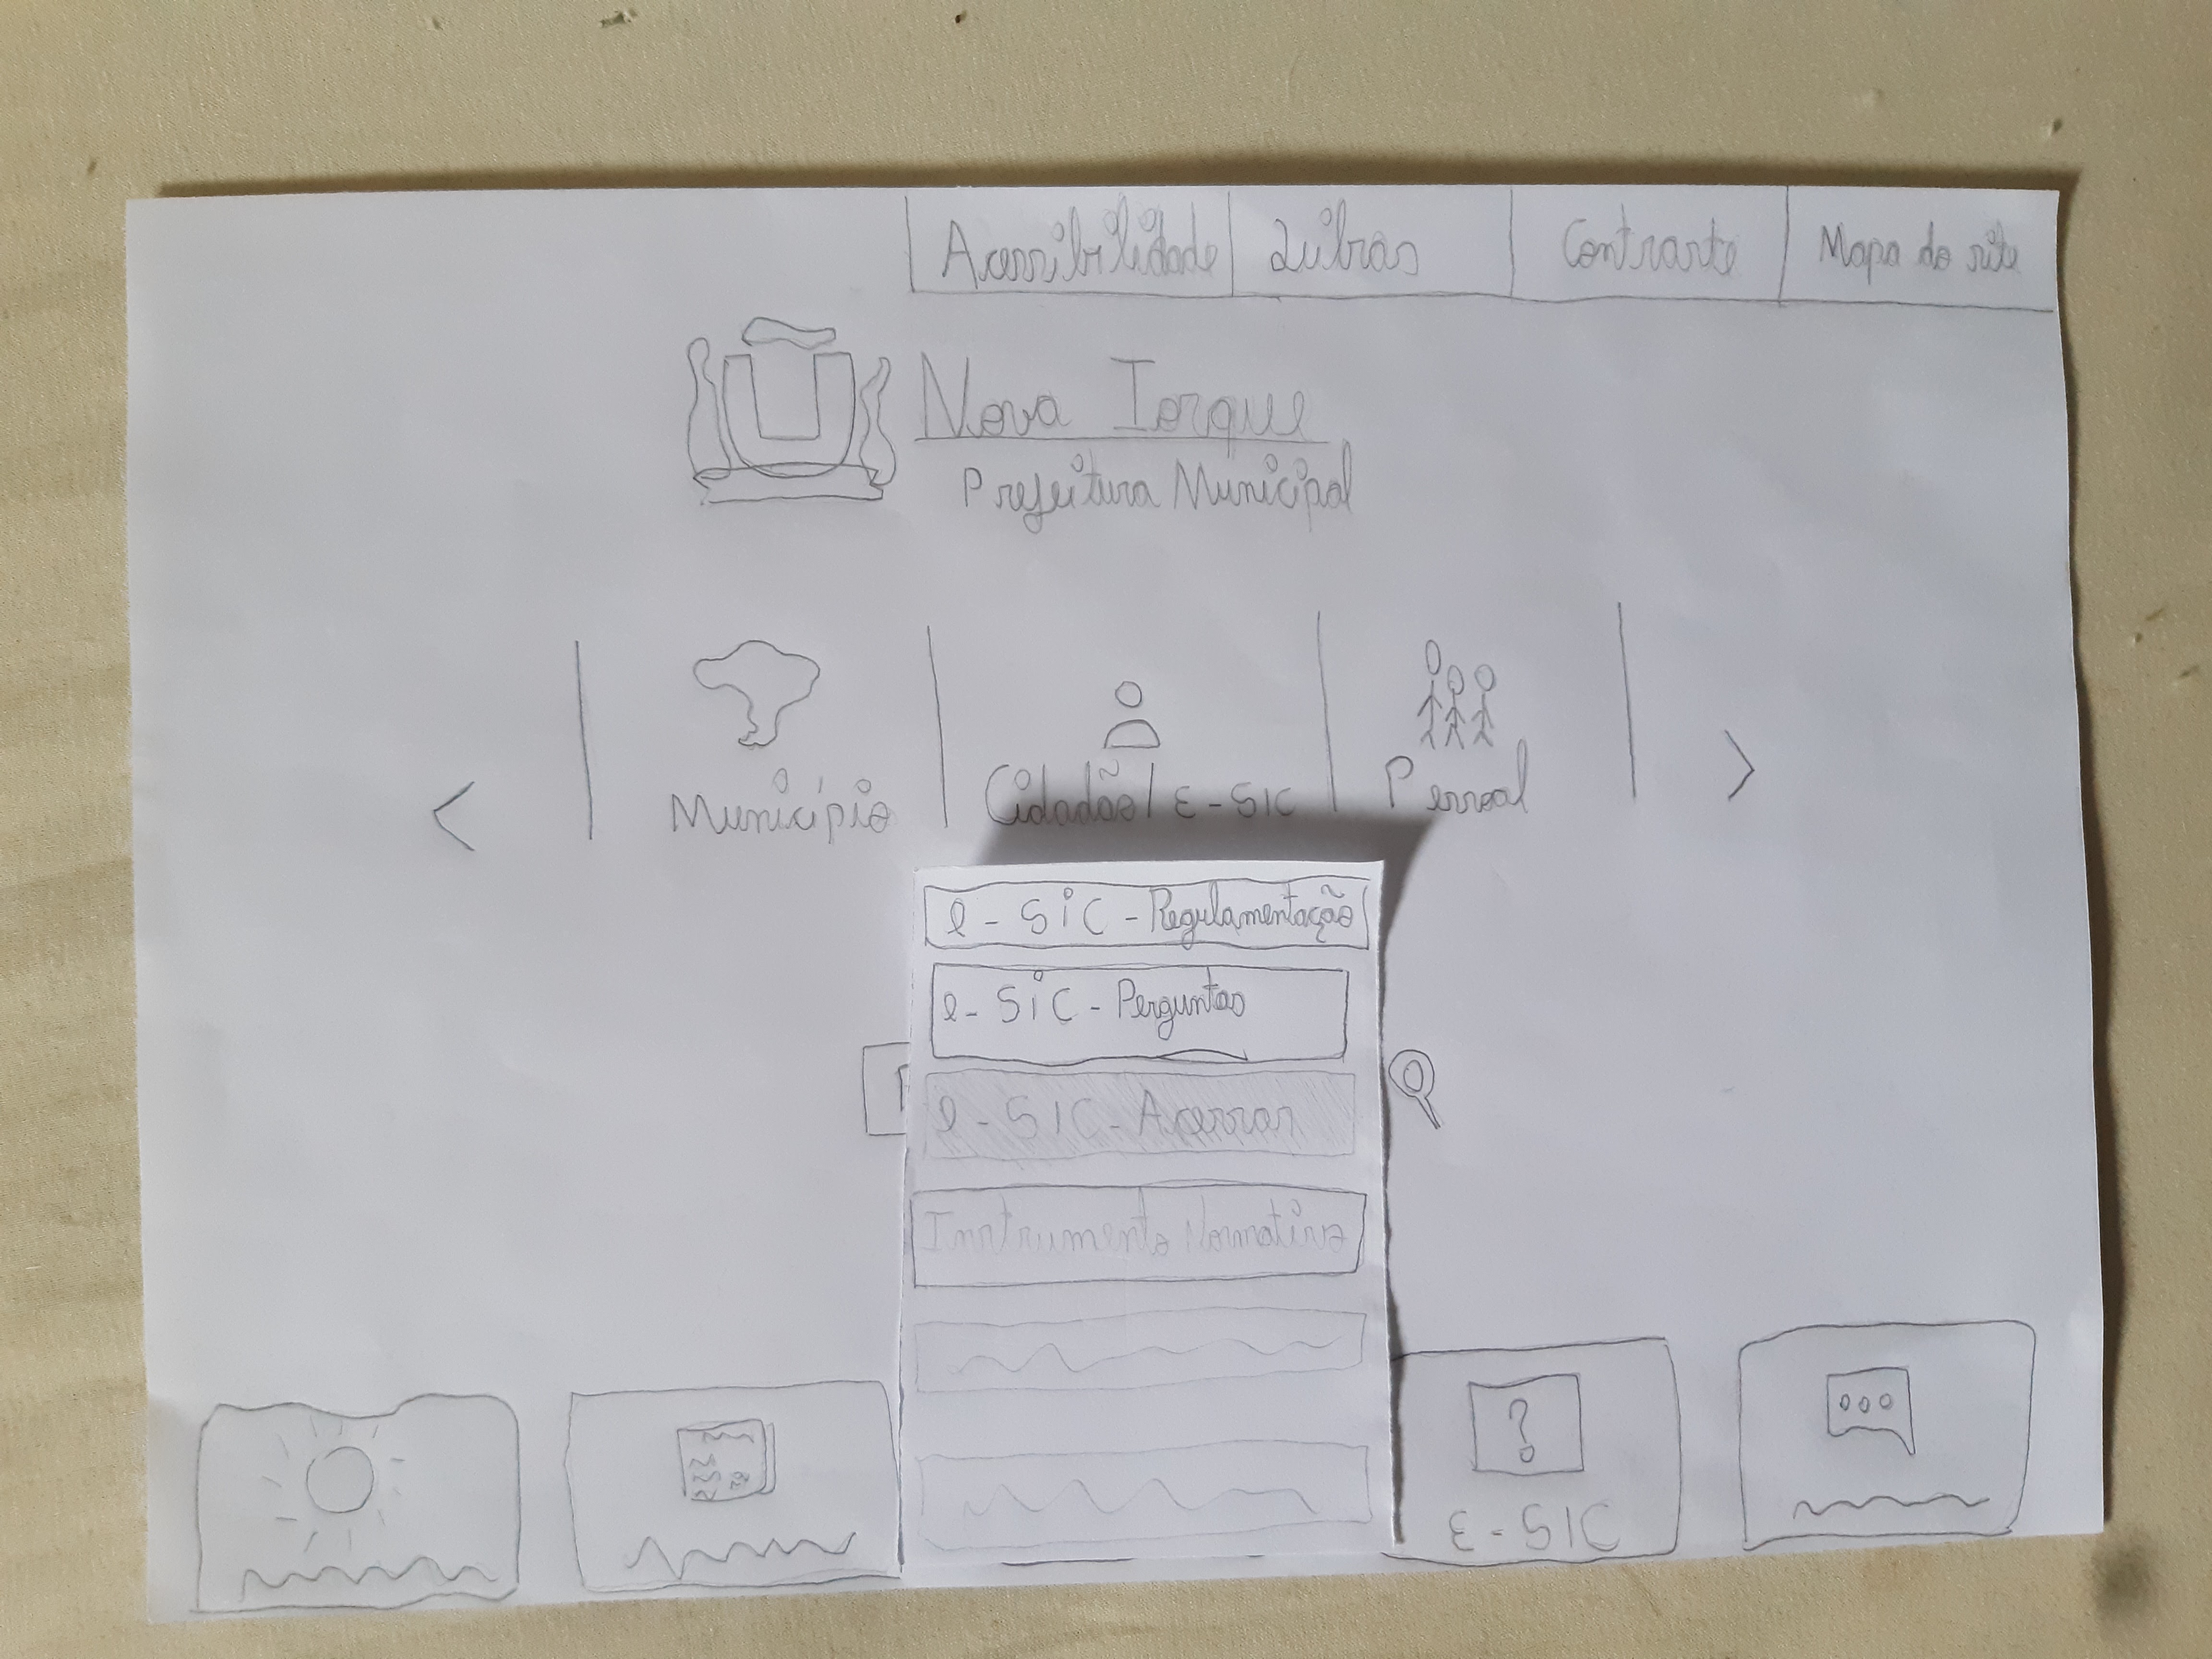 Acessibilidade Libras Contraste Mapa do site
Nova Iorque
Prefeitura Municipal
Município Cidadão/E-SIC Pessoal
e-SiC-Regulamentação
e-SiC-Perguntas
e-SIC-Acessar
Instrumento Normativo
?
E-SIC